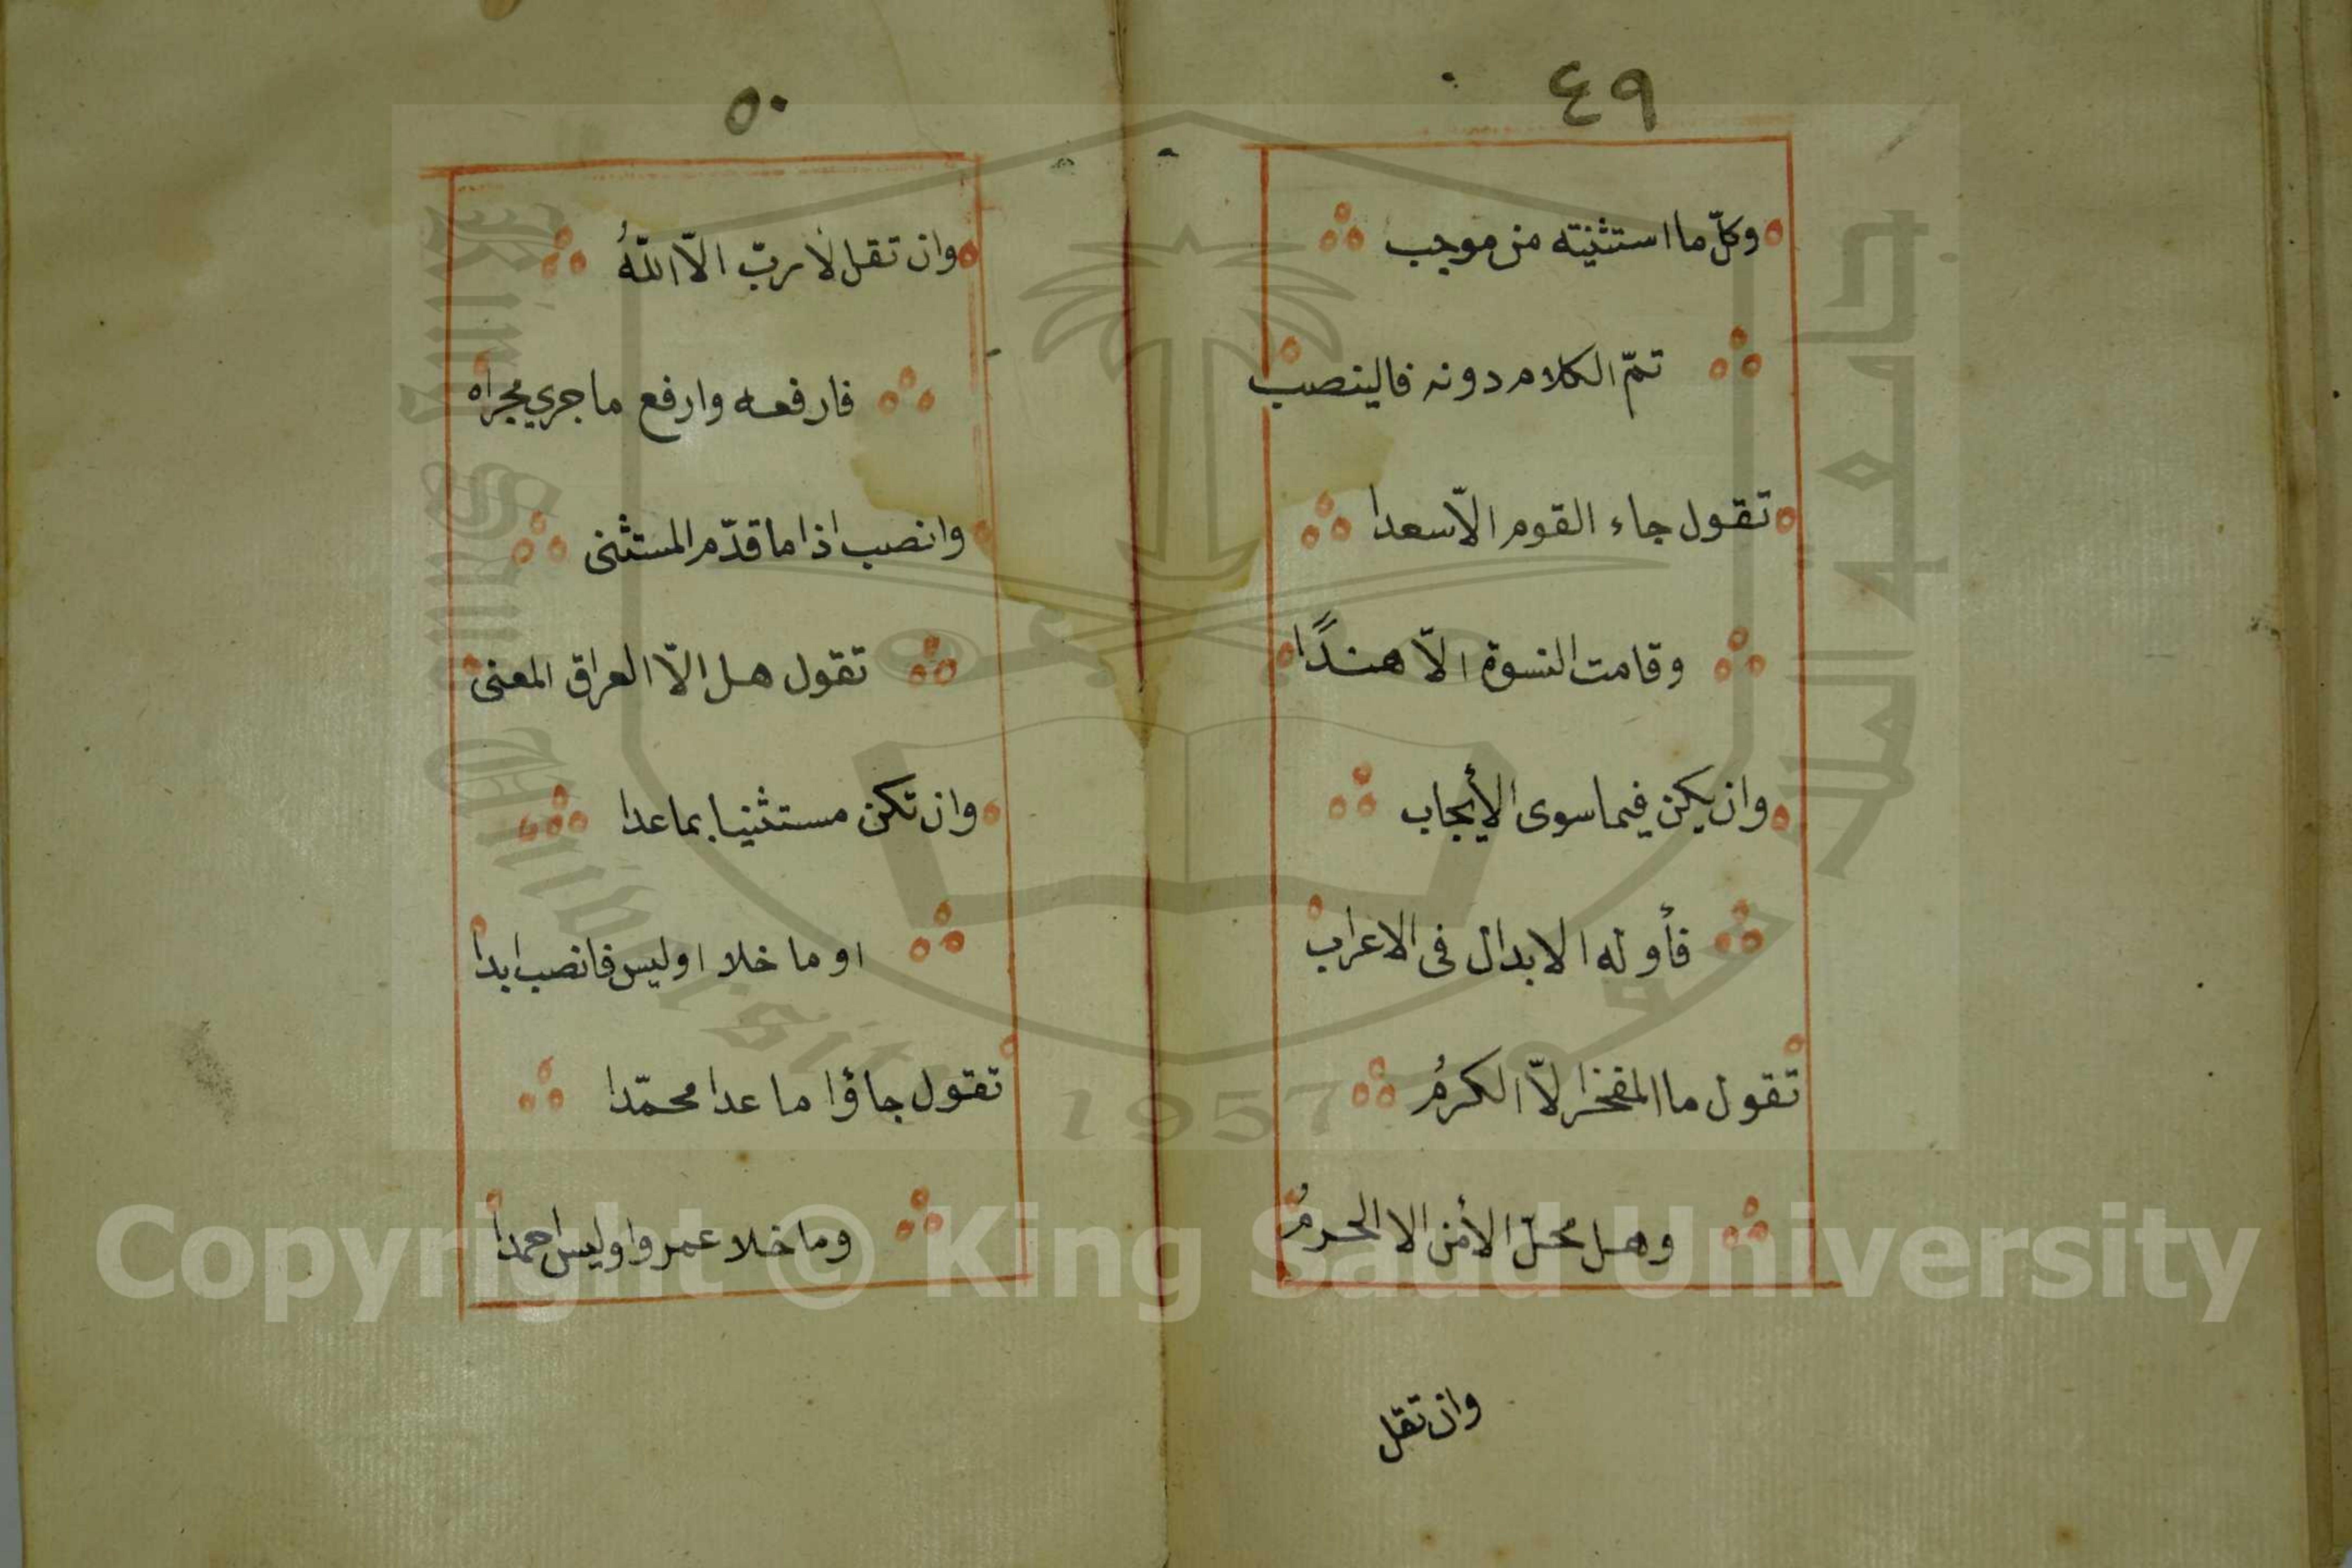 ٤٩
وكلّ ما استثنيته من موجب
تمّ الكلام دونه فالينصب
تقول جاء القوم الاّ سعدا
وقامت النسوة الاّ هندًا
وان يكن فيما سوى الأيجاب
فأوله الابدال فى الاعراب
تقول ما المفخر الاّ الكرمُ
وهل محلّ الأمن الا الحرمُ
وان تقل
٥٠
وان تقل لا ربّ الاّ اللّهُ
فارفعه وارفع ما جرى مجراه
وانصب اذا ما قدّم المستثنى
تقول هل الاّ العراق المغنى
وان تكن مستثنيا بما عدا
او ما خلا او ليس فانصب ابدا
تقول جاؤا ما عدا محمّدا
وما خلا عمروا وليس احمدا
جامعة الملك سعود
King Saud University
1957
Copyright © King Saud University